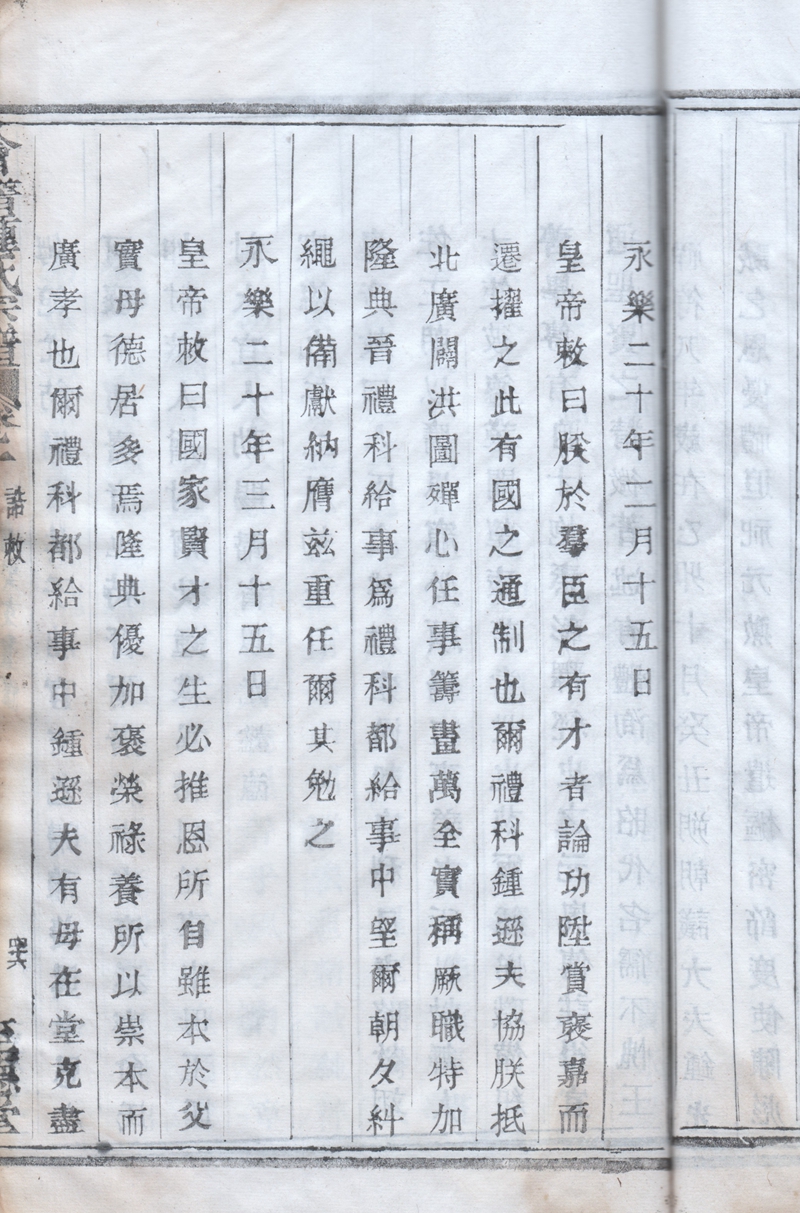 永樂二十年二月十五日
皇帝敕曰朕於羣臣之有才者論功陞賞褒嘉而
遷擢之此有國之通制也爾禮科鍾遜夫協朕抵
北廣闢洪圖殫心任事籌畫萬全實稱厥職特加
隆典晉禮科給事爲禮科都給事中望爾朝夕糾
繩以備獻納膺兹重任爾其勉之
永樂二十年三月十五日
皇帝敕曰國家賢才之生必推恩所自雖本於父
實母德居多焉隆典優加褒榮祿養所以崇本而
廣孝也爾禮科都給事中鍾遜夫有母在堂克盡
會譜鍾氏宗譜
誥敕